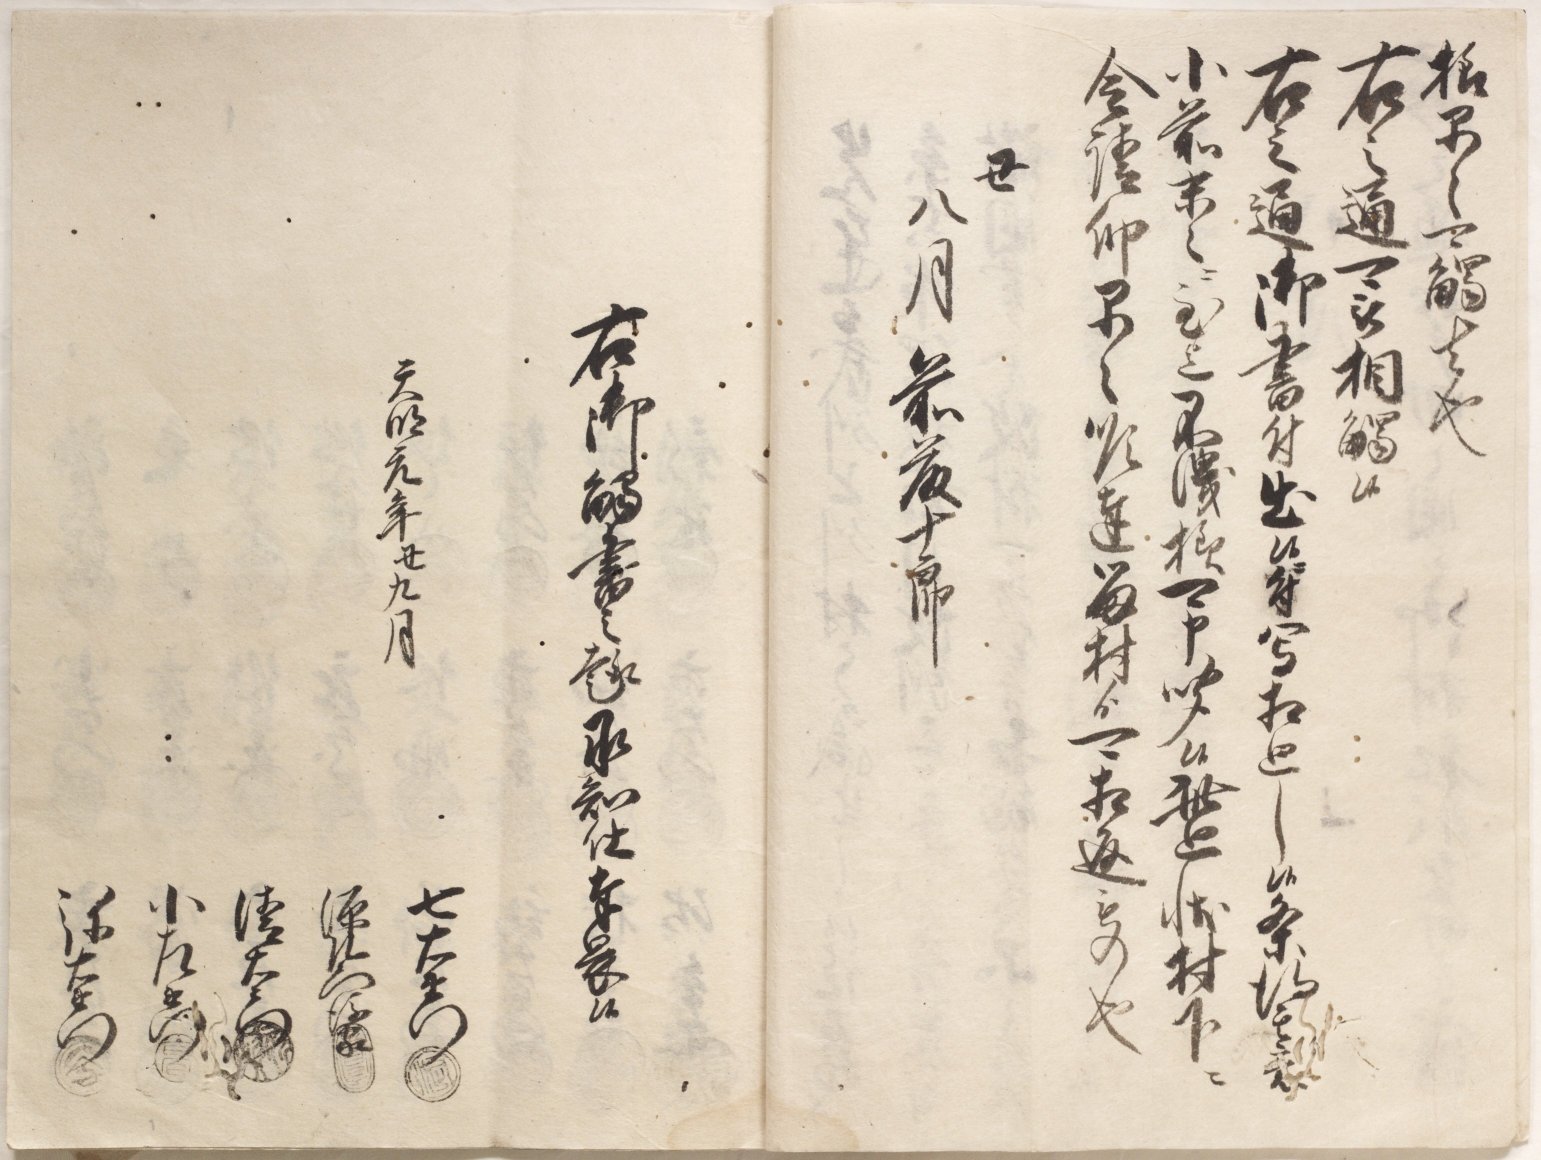 早々可觸者也
右之通可被相觸候
右之通御書付出候間写相廻し候条
小前末々ニ至迄不洩様可申聞候此廻状村下ニ
令請印早々順達留村ゟ可相返もの也
丑八月 前 十郎
右御觸書之趣承知仕奉畏候
天明元年丑九月
七左衛門
源
清左衛門
小左衛門
弥左衛門